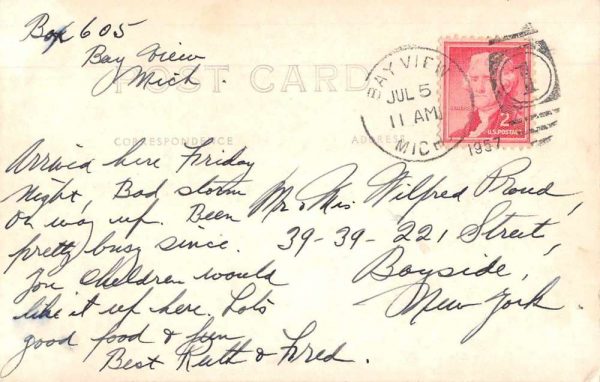 Box 605
Bay View
Mich.
POST CARD
BAY VIEW
JUL 5
11 AM
MICH
1957
1
2¢
U.S. POSTAGE
CORRESPONDENCE
ADDRESS
Arrived here Friday
night, Bad storm
on way up. Been
pretty busy since.
You children would
like it up here. Lots
good food & fun
Best Ruth & Fred.
Mr. & Mrs. Wilfred Proud,
39-39-221 Street,
Bayside,
New York.